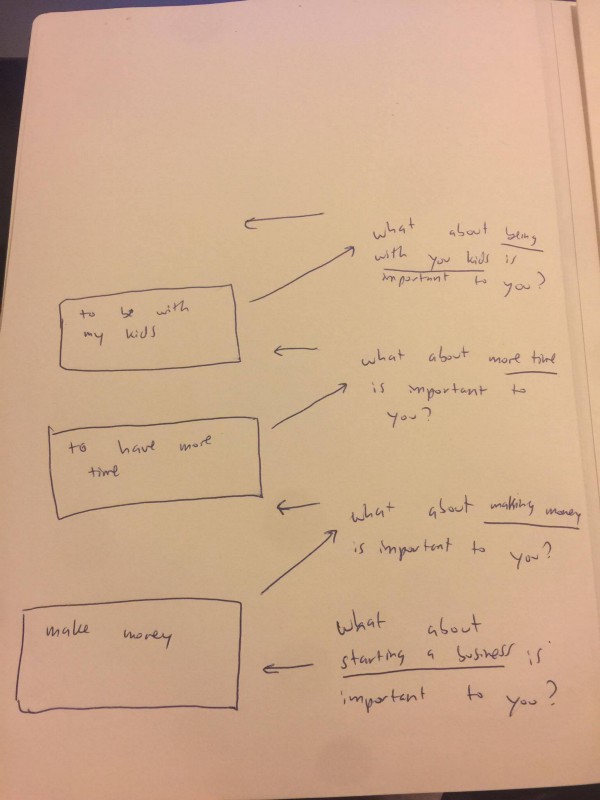 what about being
with you kids is
important to you?
to be with
my kids
what about more time
is important to
you?
to have more
time
what about making money
is important to you?
make money
what about
starting a business is
important to you?